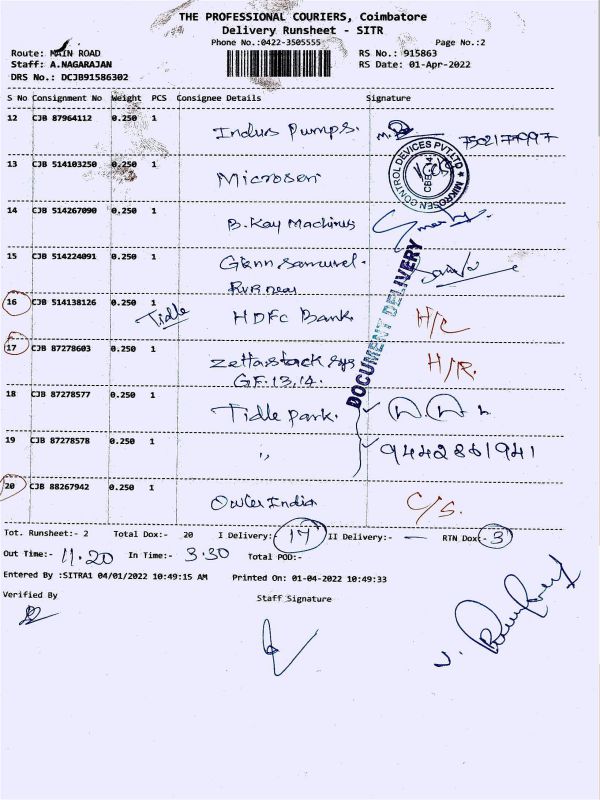 THE PROFESSIONAL COURIERS, Coimbatore
Delivery Runsheet - SITR
Phone No.:0422-3505555 Page No.:2
Route: MAIN ROAD RS No.: 915863
Staff: A.NAGARAJAN RS Date: 01-Apr-2022
DRS No.: DCJB91586302
S No Consignment No Weight PCS Consignee Details Signature
12 CJB 87964112 0.250 1
Indus Pumps.
13 CJB 514103250 0.250 1
Microsen
MIKROSEN CONTROL DEVICES PVT LTD
CBE-14
14 CJB 514267090 0.250 1
B. Kay Machines
15 CJB 514224091 0.250 1
Glenn Samuvel.
RVR near
DOCUMENT DELIVERY
16 CJB 514138126 0.250 1
Tidle HDFC Bank H/C
17 CJB 87278603 0.250 1
Zettastack Sys H/R.
GF.13,14.
18 CJB 87278577 0.250 1
Tidle park.
19 CJB 87278578 0.250 1
,, 9442861941
20 CJB 88267942 0.250 1
India C/S.
Tot. Runsheet:- 2 Total Dox:- 20 I Delivery:- 17 II Delivery:- — RTN Dox:- 3
Out Time:- 11.20 In Time:- 3.30 Total POD:-
Entered By :SITRA1 04/01/2022 10:49:15 AM Printed On: 01-04-2022 10:49:33
Verified By Staff Signature